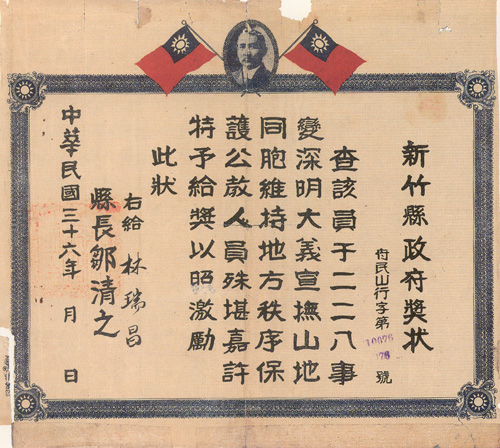 新竹縣政府獎狀
府民山行字第10076
78號
查該員于二二八事
變深明大義宣撫山地
同胞維持地方秩序保
護公教人員殊堪嘉許
特予給獎以照激勵
此狀
右給 林瑞昌
縣長鄒清之
中華民國三十六年 月 日